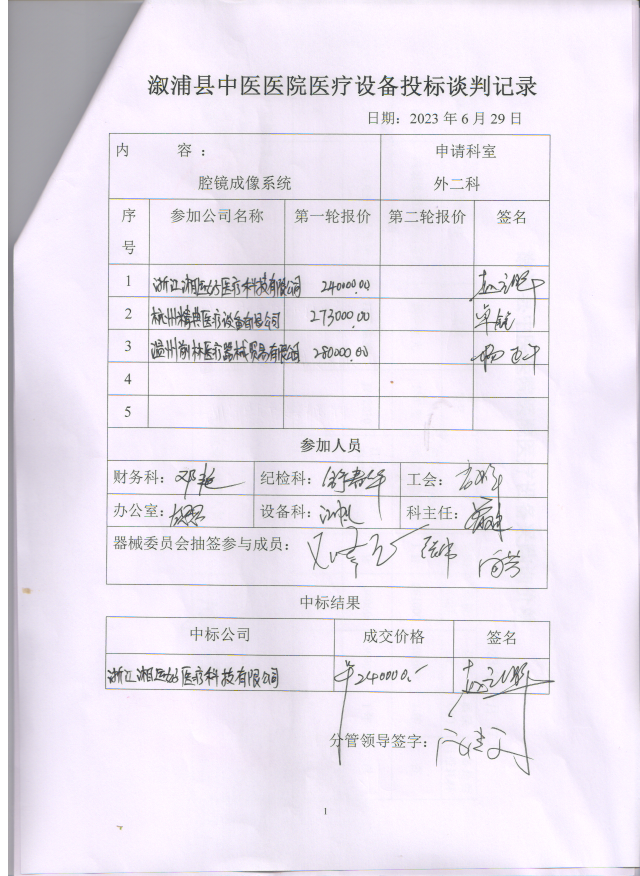 溆浦县中医医院医疗设备投标谈判记录
日期：2023 年 6 月 29 日
内 容： 申请科室
腔镜成像系统 外二科
序号 参加公司名称 第一轮报价 第二轮报价 签名
1 浙江湘运好医疗科技有限公司 240000.00
2 杭州精典医疗设备有限公司 273000.00
3 温州 医疗器械贸易有限公司 280000.00
4
5
参加人员
财务科：邓艳 纪检科： 工会：
办公室： 设备科： 科主任：
器械委员会抽签参与成员：
中标结果
中标公司 成交价格 签名
浙江湘运好医疗科技有限公司 ￥240000.-
分管领导签字：
1